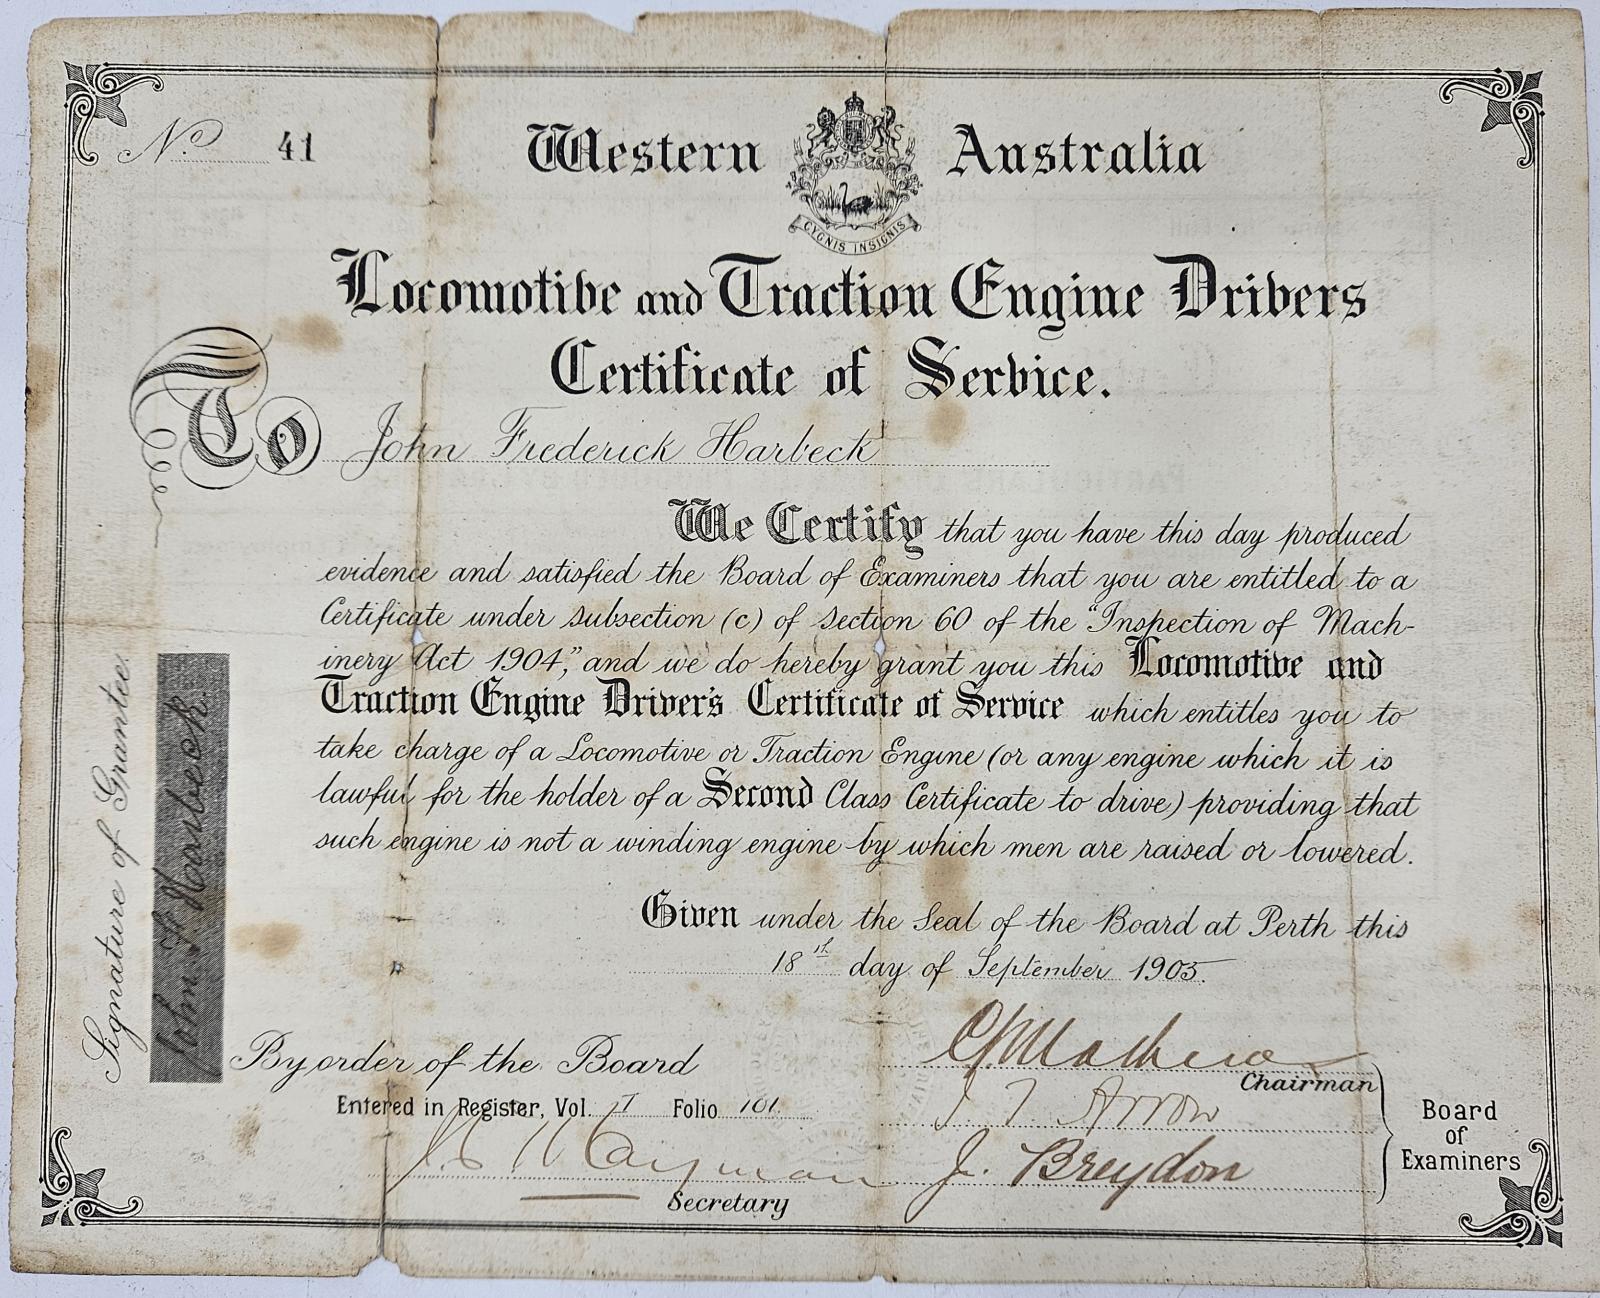 No. 41
Western Australia
CYGNIS INSIGNIS
Locomotive and Traction Engine Drivers
Certificate of Service.
To John Frederick Harbeck
We Certify that you have this day produced
evidence and satisfied the Board of Examiners that you are entitled to a
Certificate under subsection (c) of section 60 of the "Inspection of Mach-
inery Act 1904," and we do hereby grant you this Locomotive and
Traction Engine Driver's Certificate of Service which entitles you to
take charge of a Locomotive or Traction Engine (or any engine which it is
lawful for the holder of a Second Class Certificate to drive) providing that
such engine is not a winding engine by which men are raised or lowered.
Given under the Seal of the Board at Perth this
18th day of September 1905.
Signature of Grantee.
John F Harbeck
By order of the Board
Chairman
Entered in Register, Vol. I Folio 101.
Arrow
J. Breydon
Secretary
Board
of
Examiners